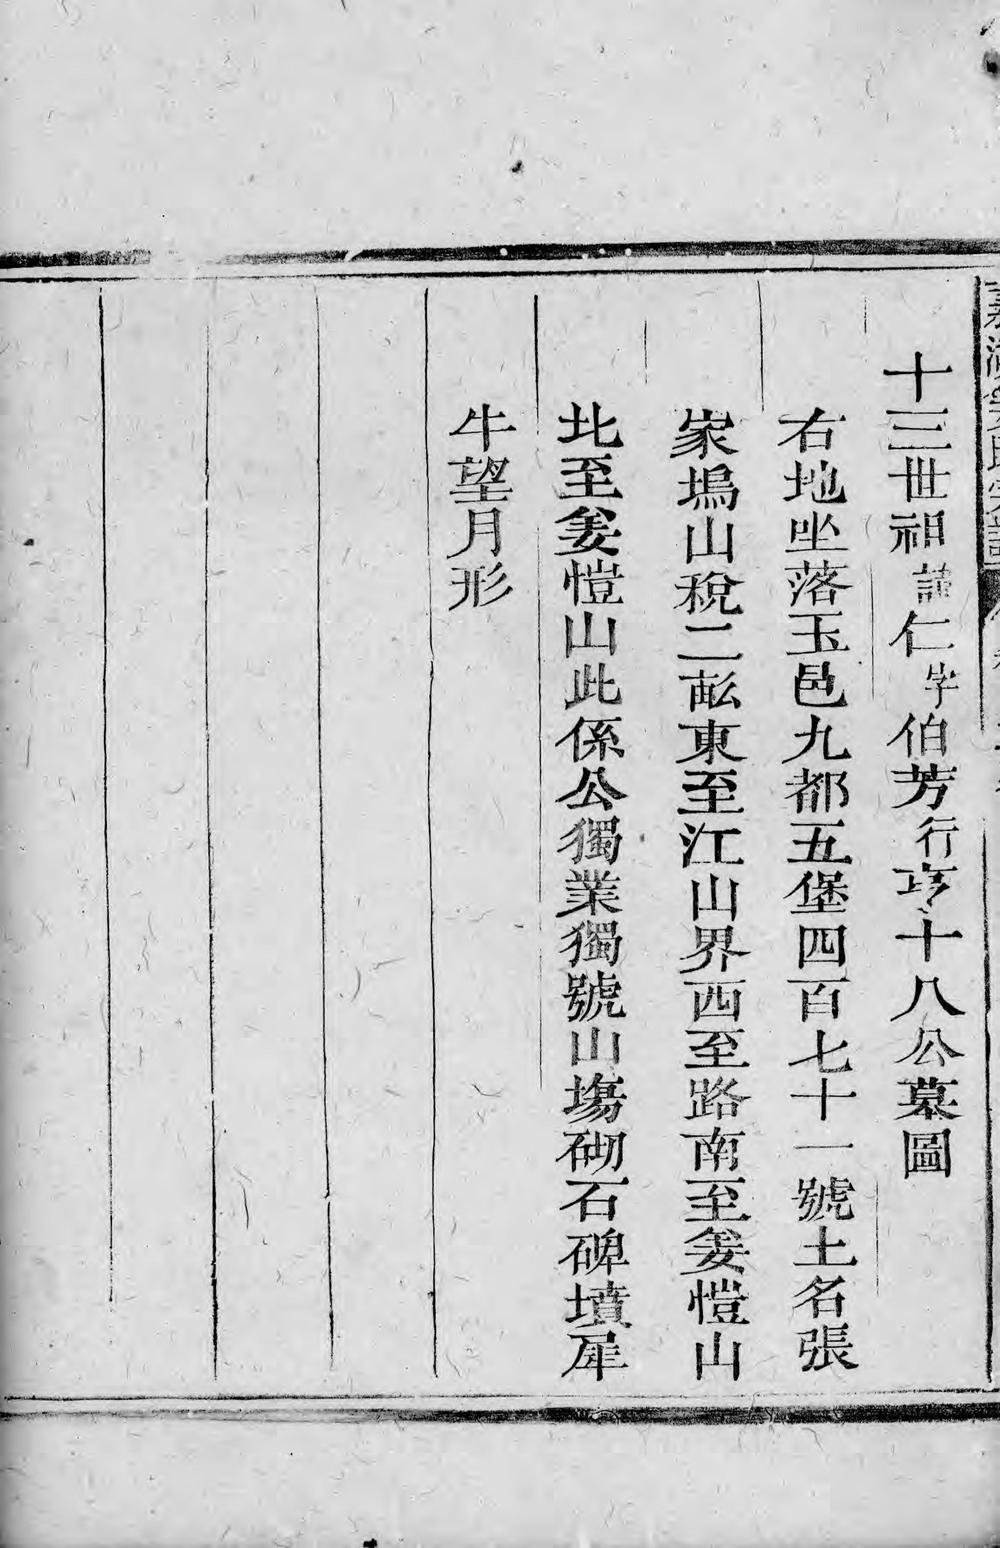 十三世祖諱仁字伯芳行亨十八公墓圖
右地坐落玉邑九都五堡四百七十一號土名張
家塢山稅二畝東至江山界西至路南至姜愷山
北至姜愷山此係公獨業獨號山塲砌石碑墳犀
牛望月形